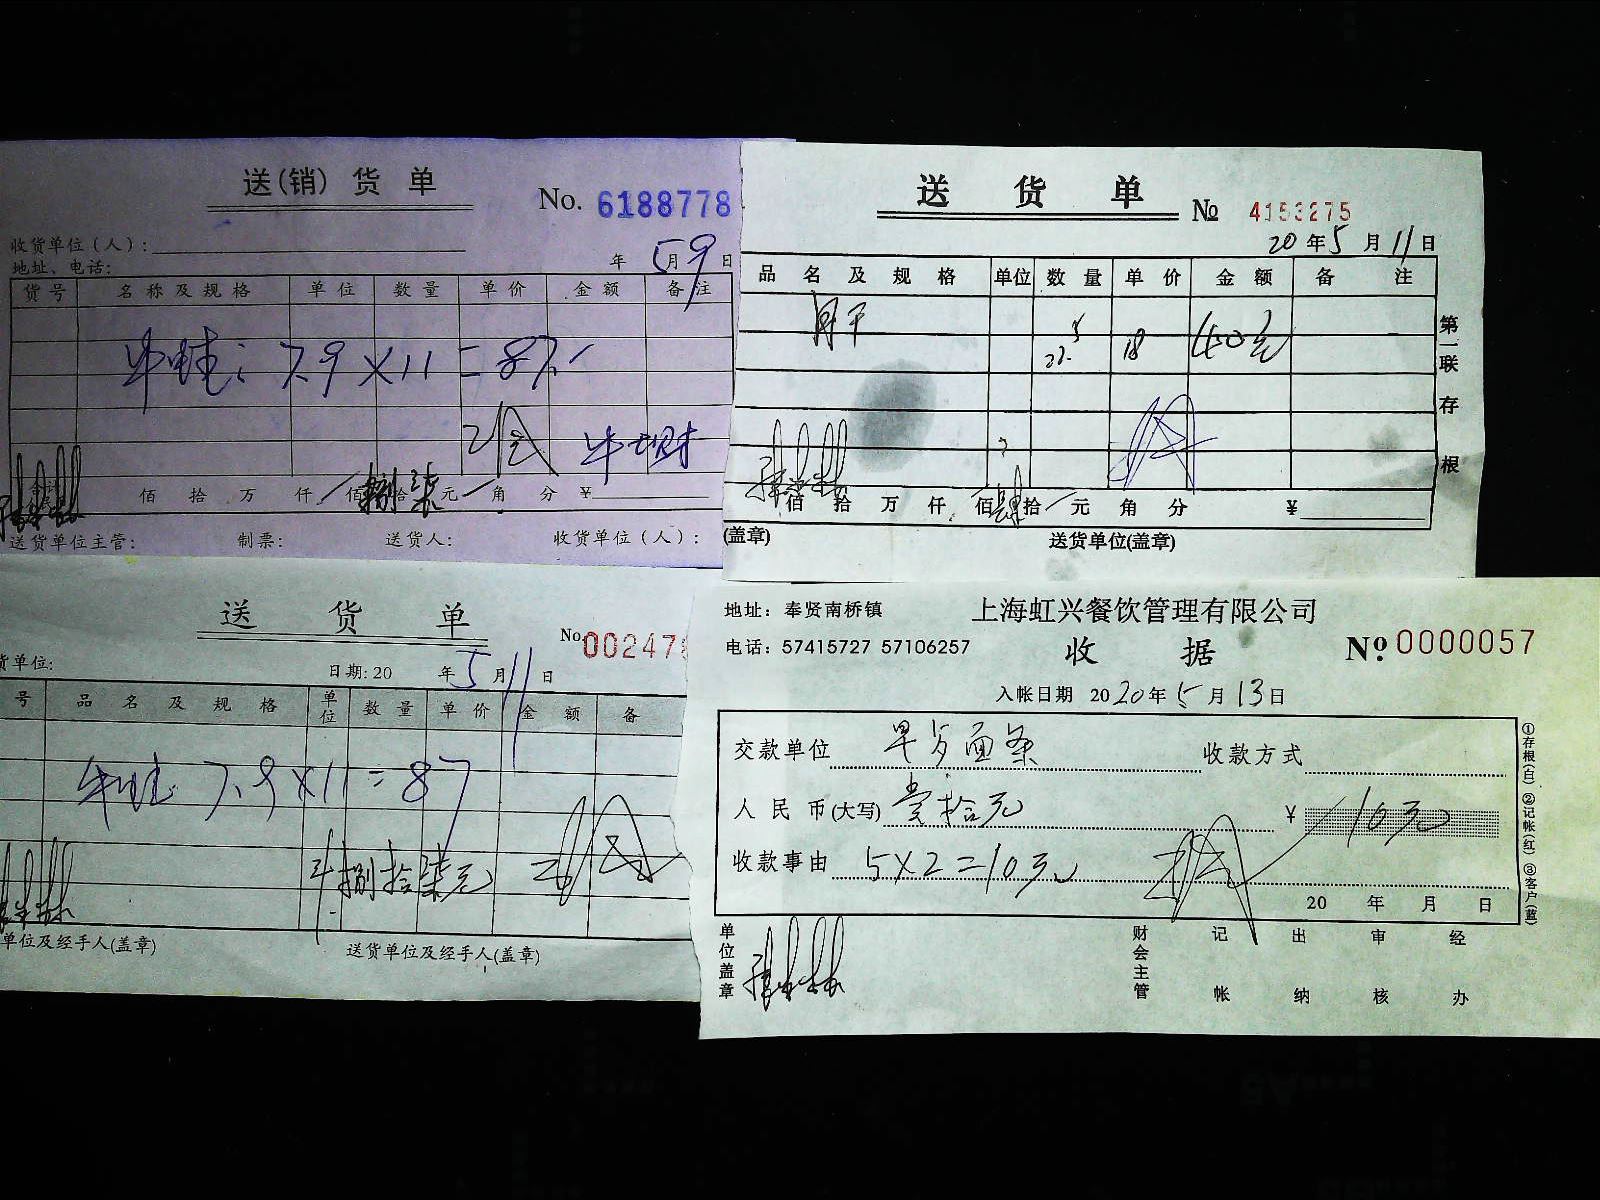 送(销)货单
No. 6188778
收货单位(人):
地址、电话:
年 5月9日
货号 名称及规格 单位 数量 单价 金额 备注
牛蛙: 7.9×11=87.-
合计 佰 拾 万 仟 佰 捌拾柒元 角 分 ¥
送货单位主管: 制票: 送货人: 收货单位(人):
送货单
№ 4153275
20年5月11日
品名及规格 单位 数量 单价 金额 备注
18 40元
第一联 存根
佰 拾 万 仟 佰肆拾 元 角 分 ¥
(盖章) 送货单位(盖章)
送货单
No.00247
货单位:
日期:20 年5月11日
号 品名及规格 单位 数量 单价 金额 备
牛蛙 7.9×11=87
捌拾柒元
单位及经手人(盖章) 送货单位及经手人(盖章)
地址:奉贤南桥镇 上海虹兴餐饮管理有限公司
电话:57415727 57106257 收据 №0000057
入帐日期 2020年5月13日
交款单位 早夕面条 收款方式
人民币(大写) 壹拾元 ¥ 10元
收款事由 5×2=10元
20 年 月 日
①存根(白)②记帐(红)③客户(蓝)
单位盖章 财会主管 记帐 出纳 审核 经办